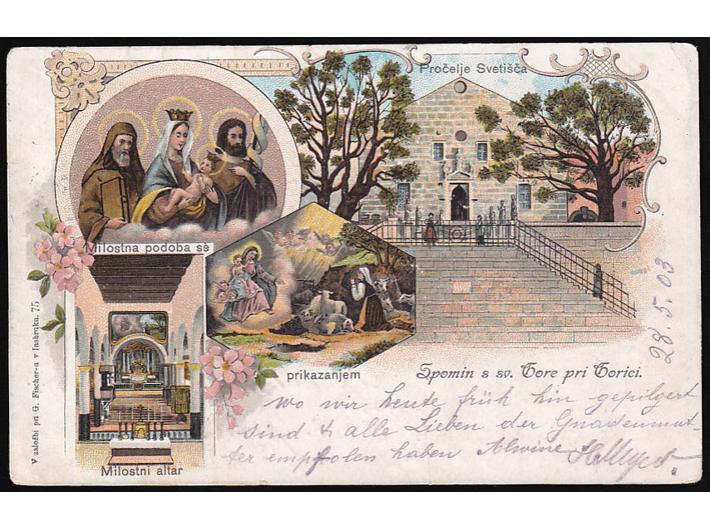 Pročelje Svetišča
Milostna podoba sš
prikazanjem
Milostni altar
Spomin s sv. Gore pri Gorici.
V založbi pri G. Fischer-u v Insbruku. 75
28.5.03
wo wir heute früh hin gepilgert
sind & alle Lieben der Gnadenmut
ter empfolen haben Alwine